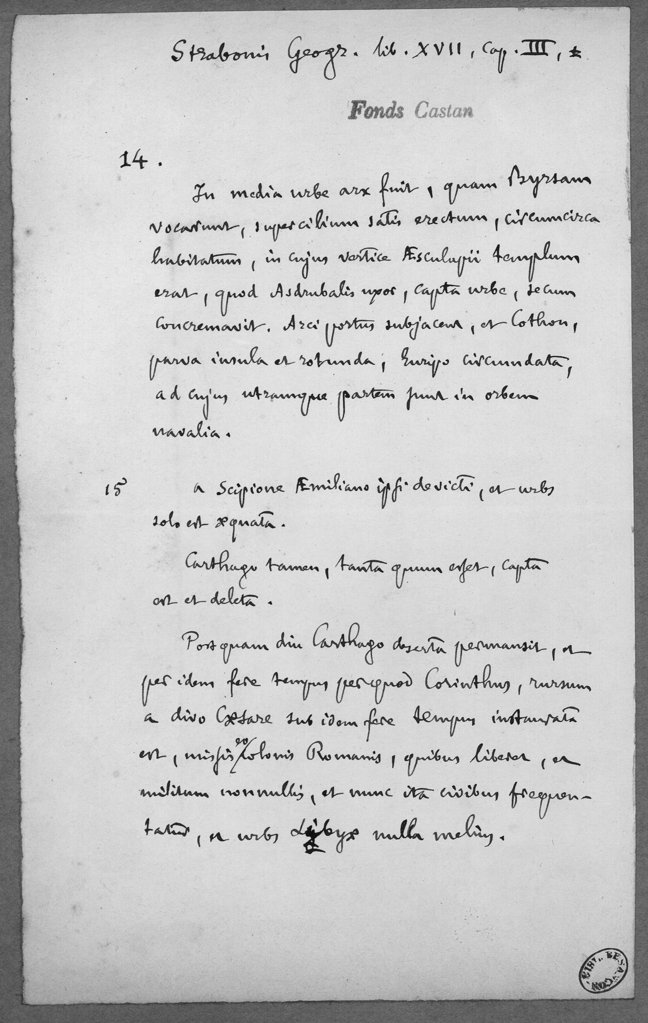 Strabonis Geogr. lib. XVII, Cap. III,
Fonds Castan
14.
In media urbe arx fuit, quam Byrsam
vocarunt, supercilium satis erectum, circumcirca
habitatum, in cujus vertice Æsculapii templum
erat, quod Asdrubalis uxor, capta urbe, secum
concremavit. Arci portus subjacent, et Cothon,
parva insula et rotunda, Euripo circumdata,
ad cujus utramque partem sunt in orbem
navalia.
15 a Scipione Æmiliano ipsi devicti, et urbs
solo est æquata.
Carthago tamen, tanta quum esset, capta
est et deleta.
Postquam diu Carthago deserta permansit, et
per idem fere tempus per quod Corinthus, rursum
a divo Cæsare sub idem fere tempus instaurata
est, missis eo colonis Romanis, quibus liberet, et
militum nonnullis, et nunc ita civibus frequen-
tatur, ut urbs Libyæ nulla melius.
BIBL. BESANÇON